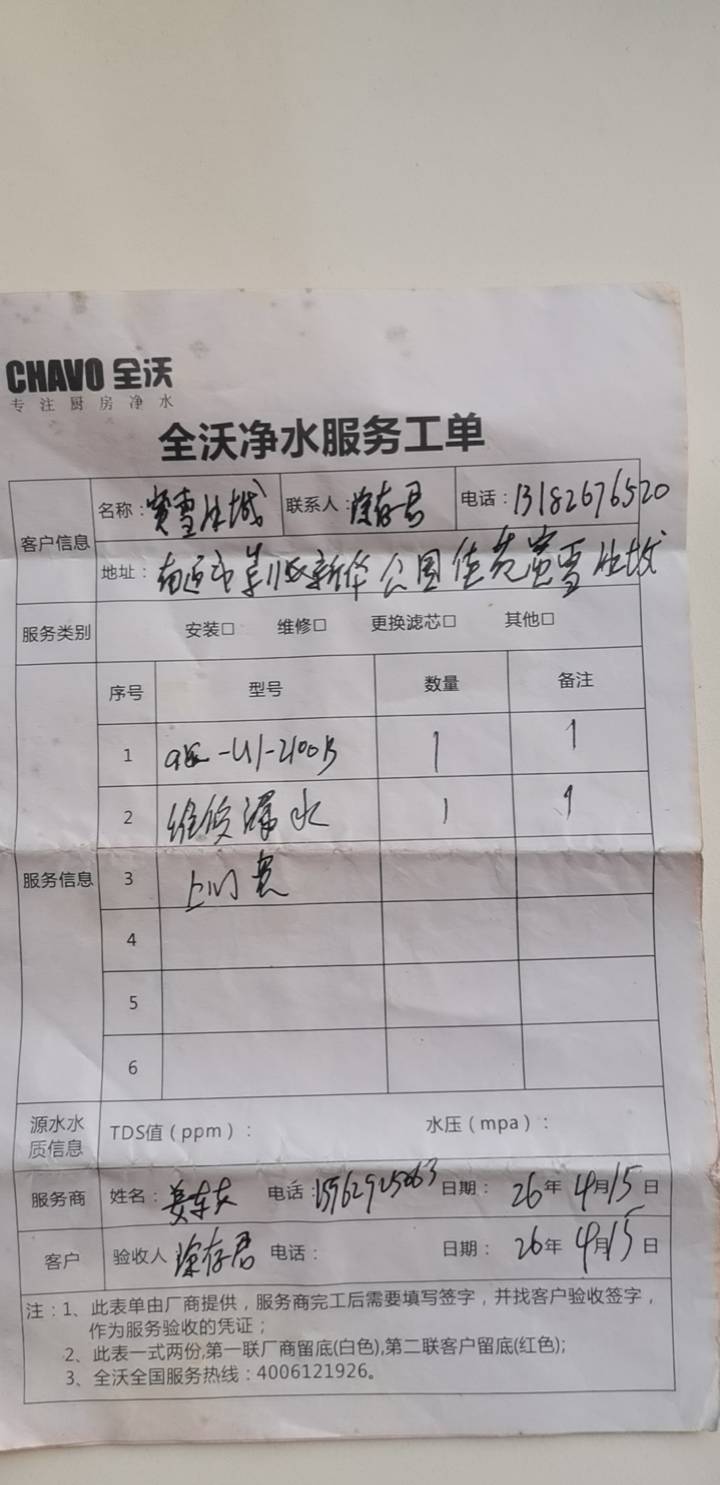 CHAVO 全沃
专注厨房净水
全沃净水服务工单
客户信息
名称：蜜雪冰城 联系人：徐存君 电话：13182676520
地址：南通市 新华公园 蜜雪冰城
服务类别 安装□ 维修□ 更换滤芯□ 其他□
服务信息
序号 型号 数量 备注
1 -U1-2100B 1 1
2 维修漏水 1 1
3 上门费
4
5
6
源水水质信息 TDS值（ppm）： 水压（mpa）：
服务商 姓名：姜 电话： 日期：26年4月15日
客户 验收人 徐存君 电话： 日期：26年4月15日
注：1、此表单由厂商提供，服务商完工后需要填写签字，并找客户验收签字，
作为服务验收的凭证；
2、此表一式两份,第一联厂商留底(白色),第二联客户留底(红色);
3、全沃全国服务热线：4006121926。